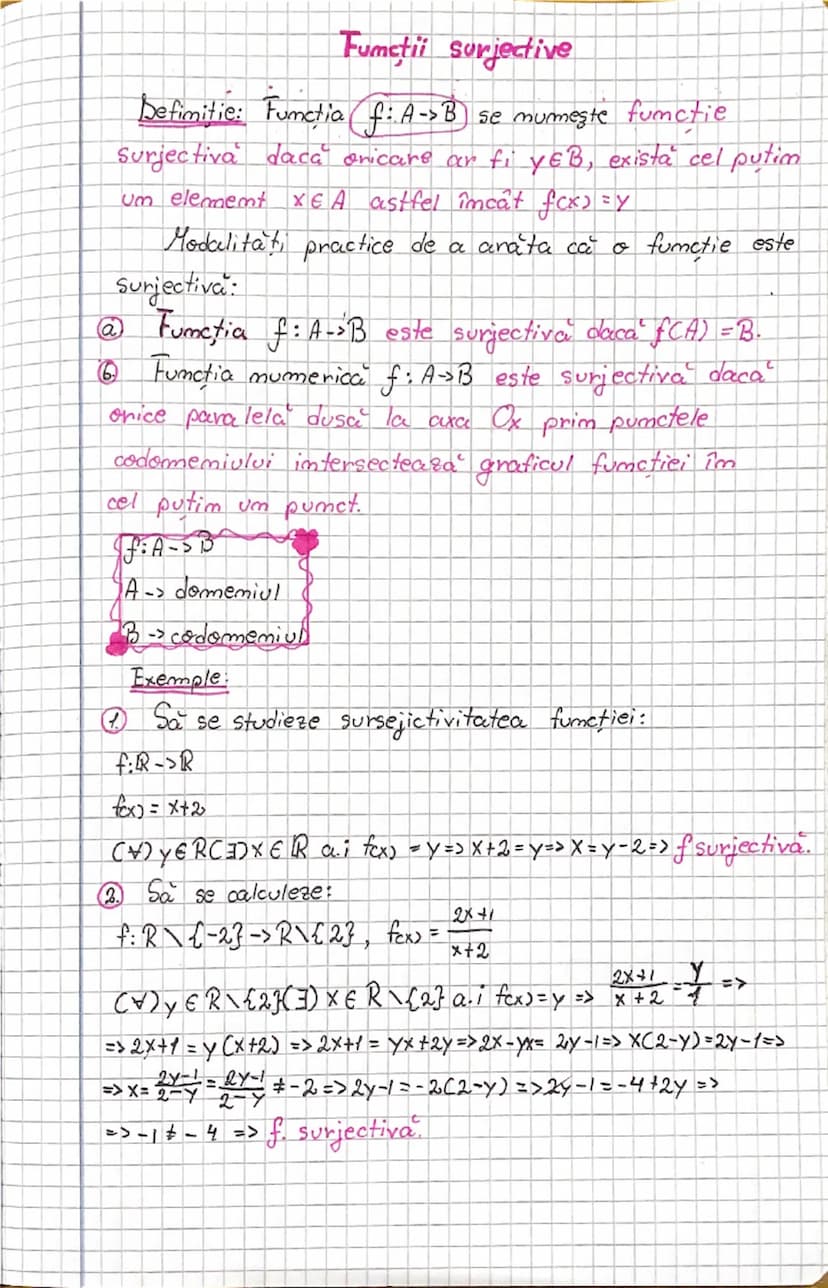 Funcții surjective
Definiție: Funcția f: A->B se numește funcție
surjectivă dacă oricare ar fi y∈B, există cel puțin
un elenemt x∈A astfel încât f(x)=y
Modalități practice de a arăta că o funcție este
surjectivă:
a) Funcția f: A->B este surjectivă dacă f(A) = B.
b) Funcția numerică f: A->B este surjectivă dacă
orice paralelă dusă la axa Ox prin punctele
codomeniului intersectează graficul funcției în
cel puțin un punct.
f: A -> B
A -> domeniul
B -> codomeniul
Exemple:
1. Să se studieze sursejictivitatea funcției:
f:R->R
f(x) = x+2
(∀) y∈R(∃)x∈R a.i f(x) = y=> x+2=y=> x=y-2=> f surjectivă.
2. Să se calculeze:
f: R\{-2}->R\{2}, f(x) = 2x+1/x+2
(∀) y∈R\{2}(∃) x∈R\{2} a.i f(x)=y => 2x+1/x+2 = y/1 =>
=> 2x+1 = y(x+2) => 2x+1 = yx+2y=>2x-yx= 2y-1=> x(2-y)=2y-1=>
=> x= 2y-1/2-y = 2y-1/2-y ≠ -2 => 2y-1 = -2(2-y) => 2y-1=-4+2y =>
=> -1 ≠ -4 => f. surjectivă.